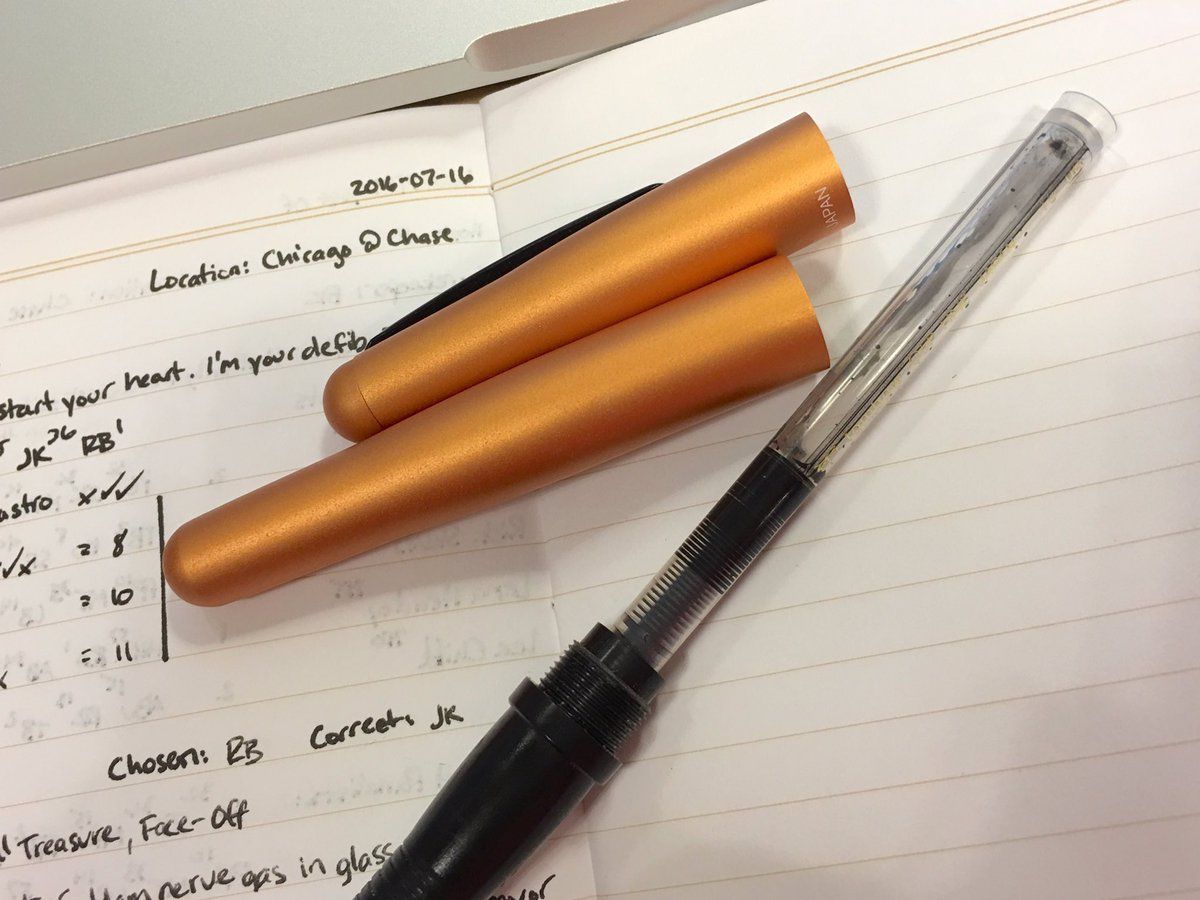 2016-07-16
Location: Chicago @ Chase
JAPAN
start your heart. I'm your defib
JK36 RB1
x✓✓
= 8
✓x = 10
= 11
Chosen: RB Correct: JK
Treasure, Face-Off
nerve gas in glass